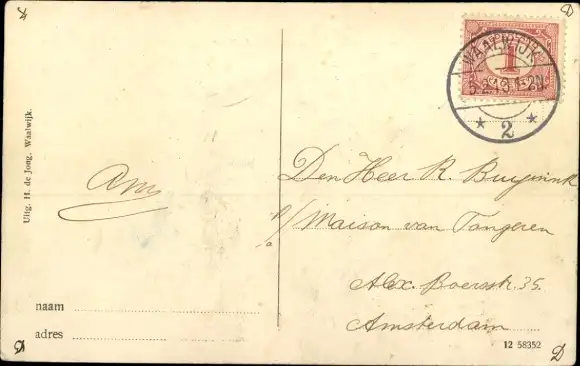 WAALWIJK
1
5.2.13.1-2N.
* 2 *
Uitg. H. de Jong. Waalwijk.
Den Heer R. Buyrink
p/a Maison van Tongeren
Alex. Boersstr. 35.
Amsterdam
naam
adres
12 58352